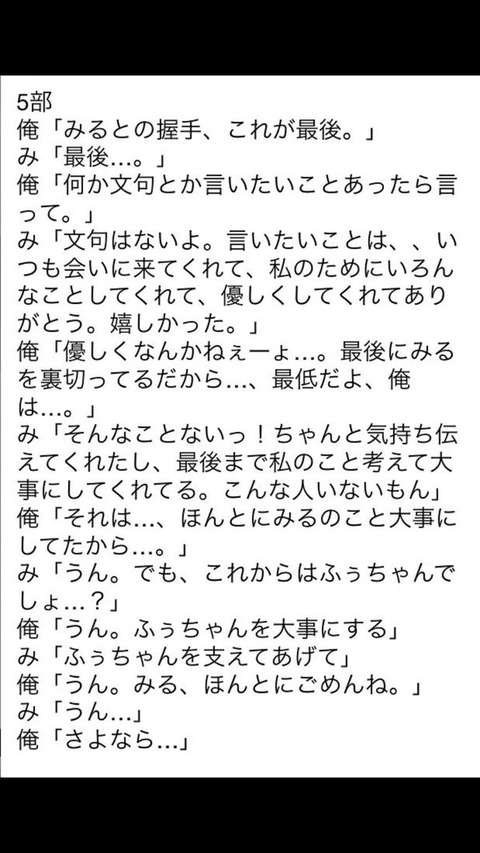 5部
俺「みるとの握手、これが最後。」
み「最後…。」
俺「何か文句とか言いたいことあったら言
って。」
み「文句はないよ。言いたいことは、、い
つも会いに来てくれて、私のためにいろん
なことしてくれて、優しくしてくれてあり
がとう。嬉しかった。」
俺「優しくなんかねぇーょ…。最後にみる
を裏切ってるだから…、最低だよ、俺
は…。」
み「そんなことないっ！ちゃんと気持ち伝
えてくれたし、最後まで私のこと考えて大
事にしてくれてる。こんな人いないもん」
俺「それは…、ほんとにみるのこと大事に
してたから…。」
み「うん。でも、これからはふぅちゃんで
しょ…？」
俺「うん。ふぅちゃんを大事にする」
み「ふぅちゃんを支えてあげて」
俺「うん。みる、ほんとにごめんね。」
み「うん…」
俺「さよなら…」